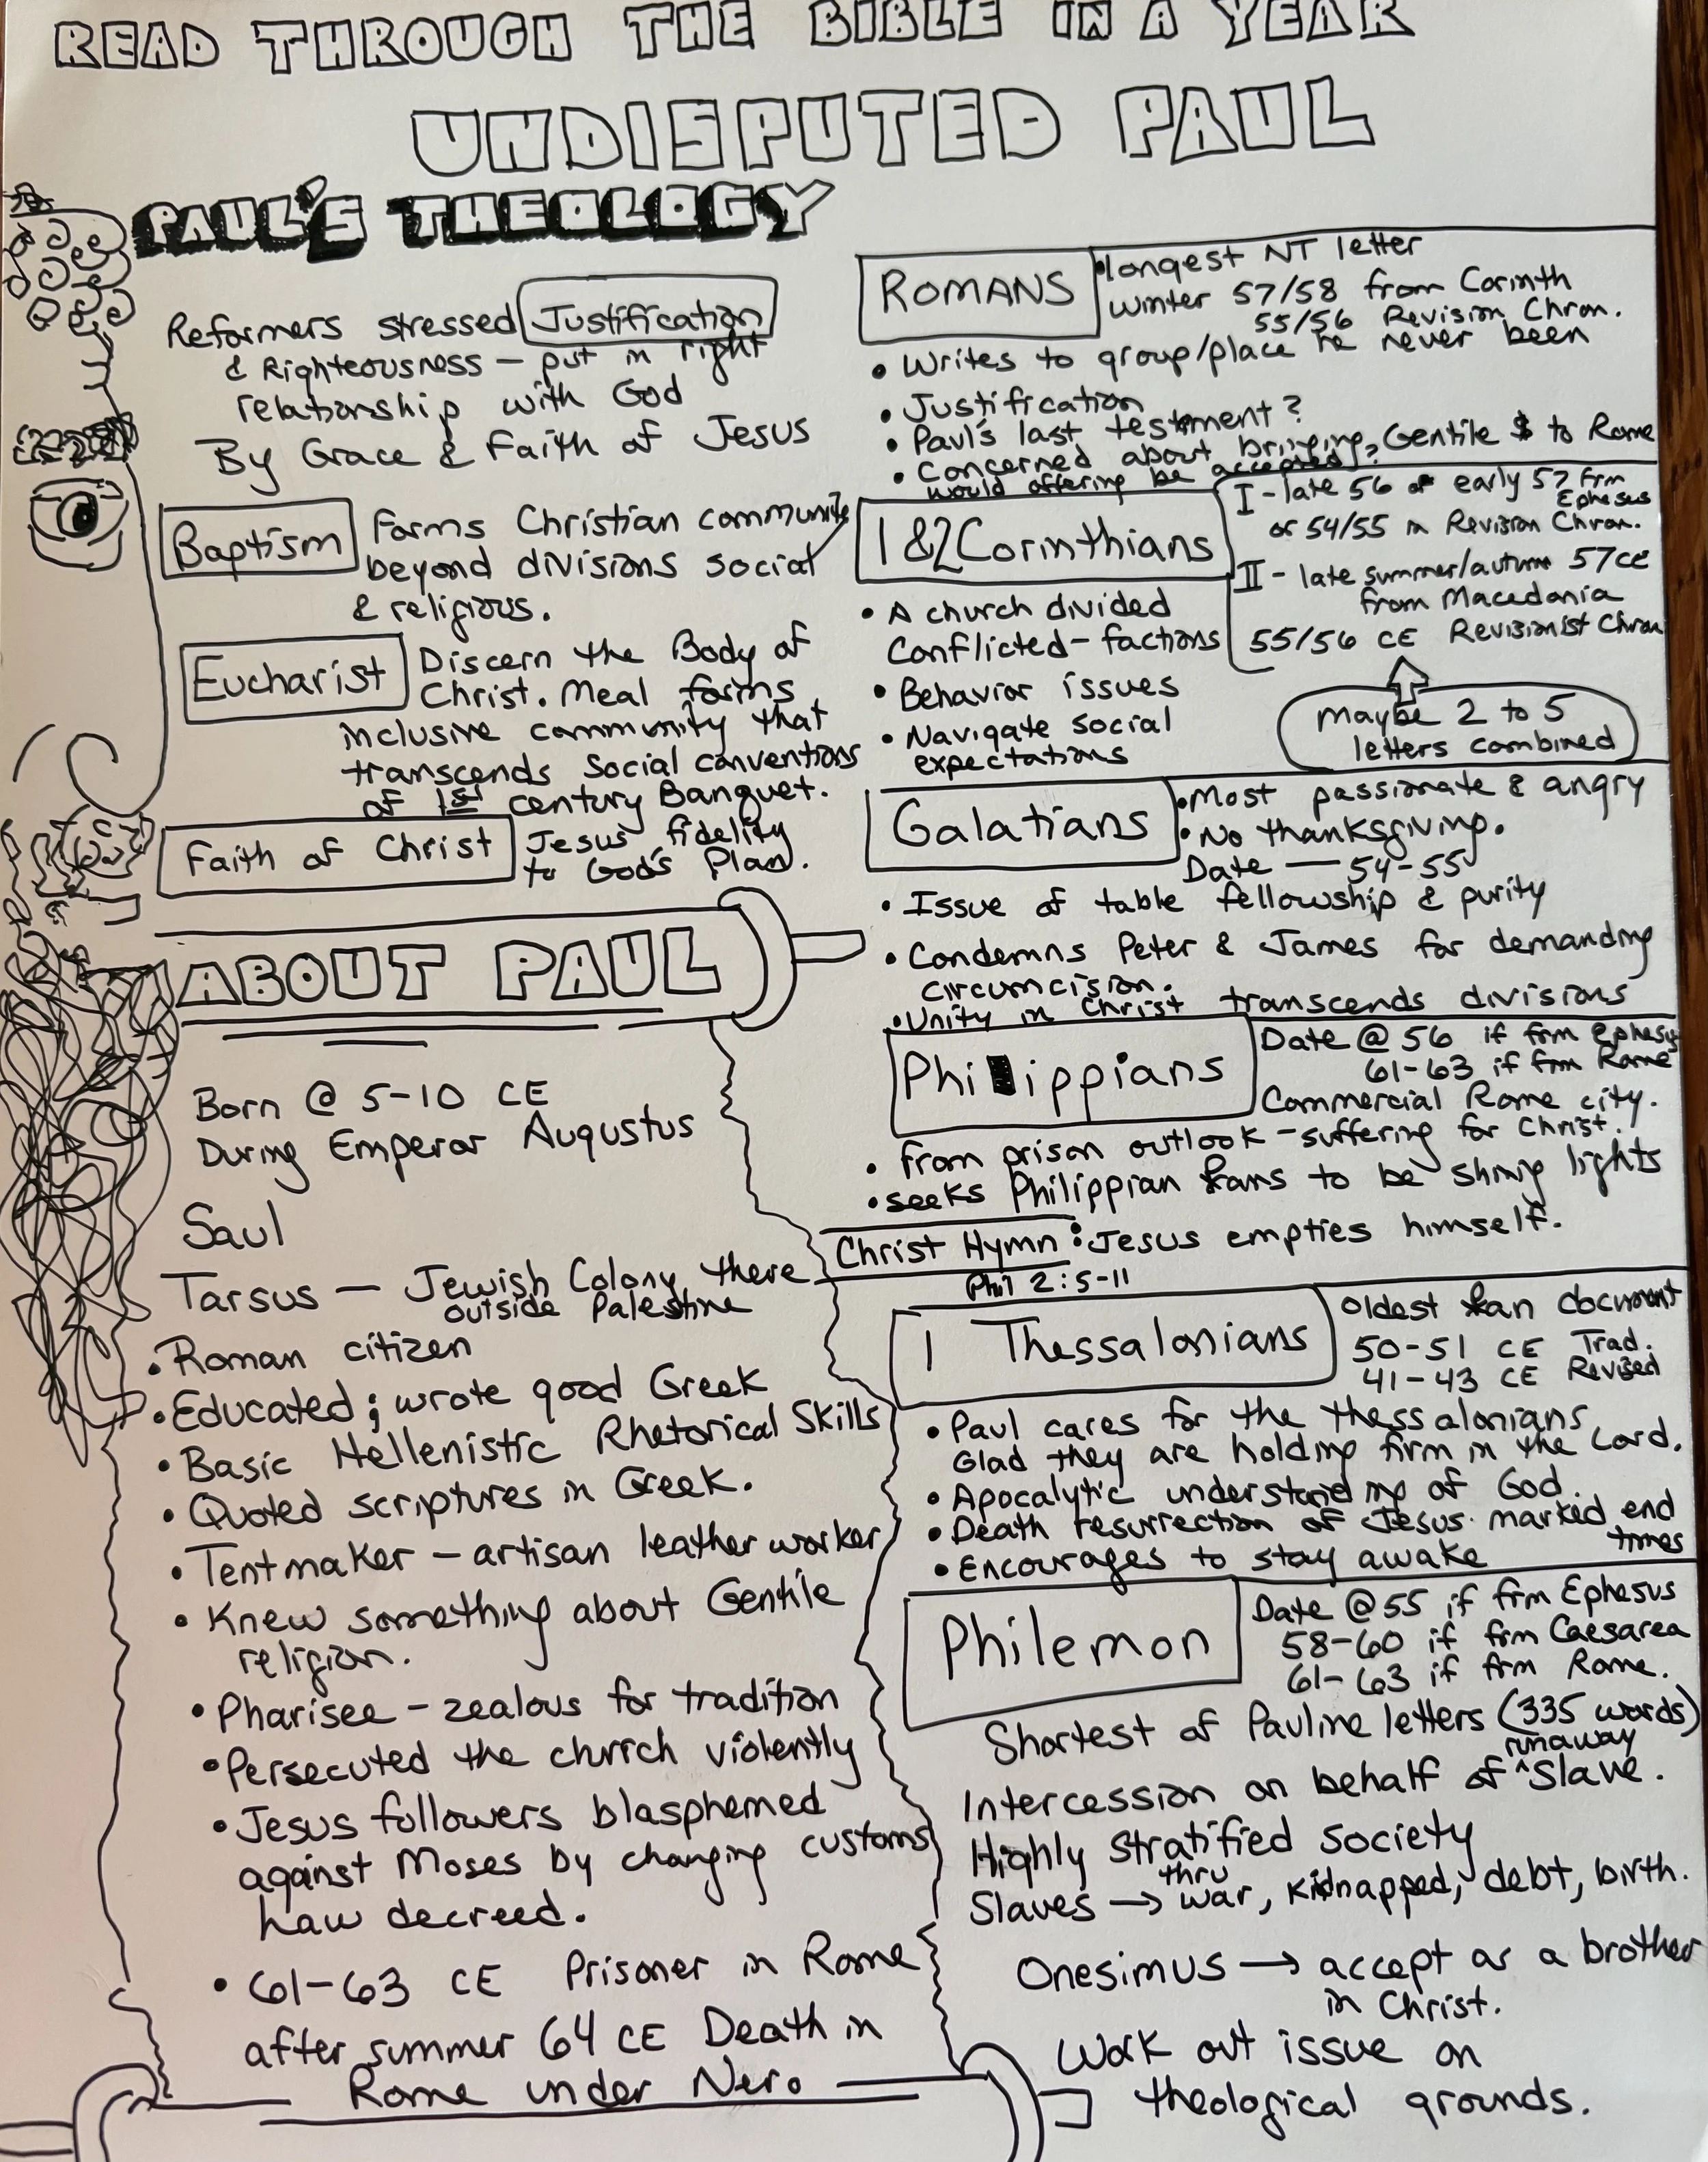 READ THROUGH THE BIBLE IN A YEAR
UNDISPUTED PAUL
PAUL'S THEOLOGY
Reformers stressed Justification
& Righteousness – put in right
relationship with God
By Grace & Faith of Jesus
Baptism
Forms Christian community
beyond divisions social
& religious.
Eucharist
Discern the Body of
Christ. Meal forms
inclusive community that
transcends social conventions
of 1st century Banquet.
Faith of Christ
Jesus' fidelity
to God's Plan.
ABOUT PAUL
Born @ 5-10 CE
During Emperor Augustus
Saul
Tarsus — Jewish Colony there
outside Palestine
• Roman citizen
• Educated; wrote good Greek
• Basic Hellenistic Rhetorical Skills
• Quoted scriptures in Greek.
• Tentmaker – artisan leather worker
• Knew something about Gentile
religion.
• Pharisee – zealous for tradition
• Persecuted the church violently
• Jesus followers blasphemed
against Moses by changing customs
Law decreed.
• 61-63 CE Prisoner in Rome
after summer 64 CE Death in
Rome under Nero
ROMANS
• longest NT letter
winter 57/58 from Corinth
55/56 Revision Chron.
• Writes to group/place he never been
• Justification
• Paul's last testment?
• Concerned about bringing Gentile $ to Rome
would offering be accepted?
1 & 2 Corinthians
I - late 56 or early 57 frm
Ephesus
or 54/55 in Revision Chron.
II - late summer/autumn 57CE
from Macedonia
55/56 CE Revisionist Chron
maybe 2 to 5
letters combined
• A church divided
Conflicted - factions
• Behavior issues
• Navigate social
expectations
Galatians
• Most passionate & angry
• No thanksgiving.
Date — 54-55
• Issue of table fellowship & purity
• Condemns Peter & James for demanding
circumcision.
• Unity in Christ transcends divisions
Philippians
Date @ 56 if frm Ephesus
61-63 if frm Rome
Commercial Rome city.
• from prison outlook – suffering for Christ.
• seeks Philippian Xans to be shinig lights
Christ Hymn : Jesus empties himself.
Phil 2:5-11
1 Thessalonians
Oldest Xan document
50-51 CE Trad.
41-43 CE Revised
• Paul cares for the thessalonians
Glad they are holding firm in the Lord.
• Apocalytic understanding of God.
• Death resurrection of Jesus marked end
times
• Encourages to stay awake
Philemon
Date @ 55 if frm Ephesus
58-60 if frm Caesarea
61-63 if frm Rome.
Shortest of Pauline letters (335 words)
Intercession on behalf of ^runaway Slave.
Highly stratified society
Slaves → thru war, kidnapped, debt, birth.
Onesimus → accept as a brother
in Christ.
Work out issue on
theological grounds.